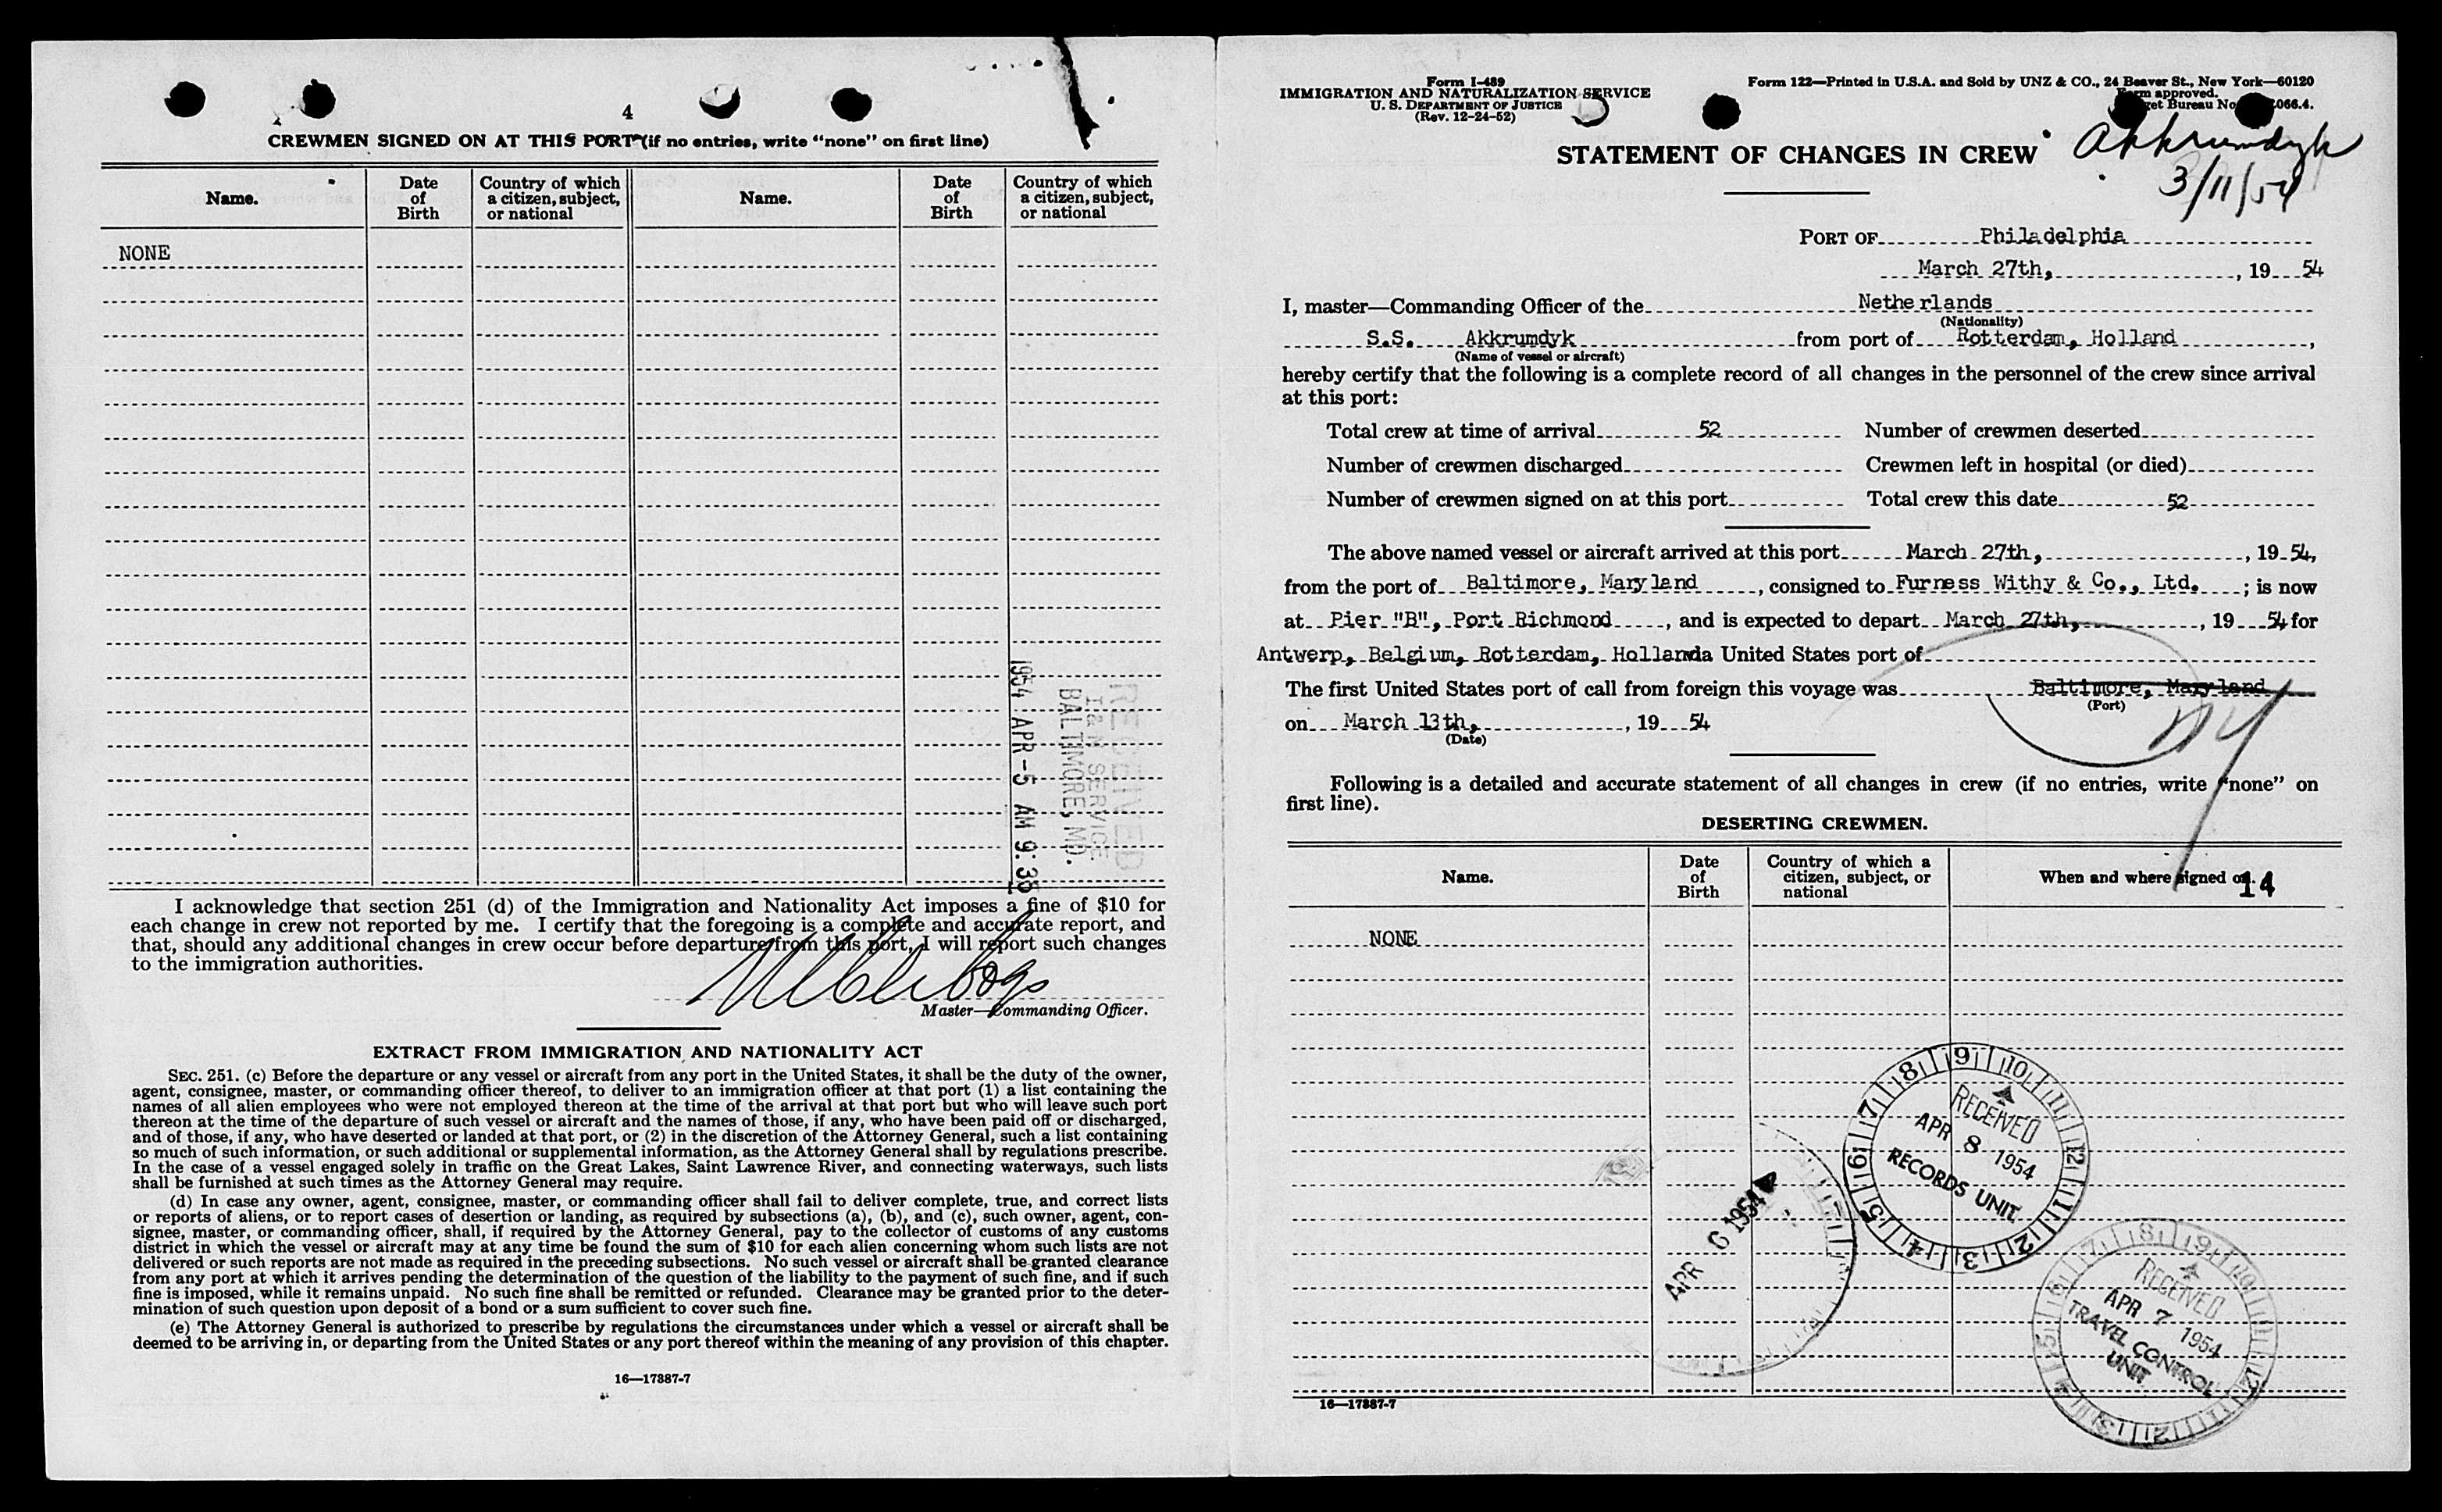 4
CREWMEN SIGNED ON AT THIS PORT (if no entries, write "none" on first line)
Name.
Date of Birth
Country of which a citizen, subject, or national
Name.
Date of Birth
Country of which a citizen, subject, or national
NONE
RECEIVED
I & N SERVICE
BALTIMORE, MD.
1954 APR -5 AM 9:38
I acknowledge that section 251 (d) of the Immigration and Nationality Act imposes a fine of $10 for
each change in crew not reported by me. I certify that the foregoing is a complete and accurate report, and
that, should any additional changes in crew occur before departure from this port, I will report such changes
to the immigration authorities.
Master—Commanding Officer.
EXTRACT FROM IMMIGRATION AND NATIONALITY ACT
SEC. 251. (c) Before the departure or any vessel or aircraft from any port in the United States, it shall be the duty of the owner,
agent, consignee, master, or commanding officer thereof, to deliver to an immigration officer at that port (1) a list containing the
names of all alien employees who were not employed thereon at the time of the arrival at that port but who will leave such port
thereon at the time of the departure of such vessel or aircraft and the names of those, if any, who have been paid off or discharged,
and of those, if any, who have deserted or landed at that port, or (2) in the discretion of the Attorney General, such a list containing
so much of such information, or such additional or supplemental information, as the Attorney General shall by regulations prescribe.
In the case of a vessel engaged solely in traffic on the Great Lakes, Saint Lawrence River, and connecting waterways, such lists
shall be furnished at such times as the Attorney General may require.
(d) In case any owner, agent, consignee, master, or commanding officer shall fail to deliver complete, true, and correct lists
or reports of aliens, or to report cases of desertion or landing, as required by subsections (a), (b), and (c), such owner, agent, con-
signee, master, or commanding officer, shall, if required by the Attorney General, pay to the collector of customs of any customs
district in which the vessel or aircraft may at any time be found the sum of $10 for each alien concerning whom such lists are not
delivered or such reports are not made as required in the preceding subsections. No such vessel or aircraft shall be granted clearance
from any port at which it arrives pending the determination of the question of the liability to the payment of such fine, and if such
fine is imposed, while it remains unpaid. No such fine shall be remitted or refunded. Clearance may be granted prior to the deter-
mination of such question upon deposit of a bond or a sum sufficient to cover such fine.
(e) The Attorney General is authorized to prescribe by regulations the circumstances under which a vessel or aircraft shall be
deemed to be arriving in, or departing from the United States or any port thereof within the meaning of any provision of this chapter.
16—17887-7
Form I-489
IMMIGRATION AND NATURALIZATION SERVICE
U. S. DEPARTMENT OF JUSTICE
(Rev. 12-24-52)
Form 122—Printed in U.S.A. and Sold by UNZ & CO., 24 Beaver St., New York—60120
Form approved.
Budget Bureau No. 066.4.
STATEMENT OF CHANGES IN CREW
Akkrumdyk
3/11/54
PORT OF Philadelphia
March 27th, , 19 54
I, master—Commanding Officer of the Netherlands
(Nationality)
S.S. Akkrumdyk from port of Rotterdam, Holland ,
(Name of vessel or aircraft)
hereby certify that the following is a complete record of all changes in the personnel of the crew since arrival
at this port:
Total crew at time of arrival 52 Number of crewmen deserted
Number of crewmen discharged Crewmen left in hospital (or died)
Number of crewmen signed on at this port Total crew this date 52
The above named vessel or aircraft arrived at this port March 27th, , 19 54,
from the port of Baltimore, Maryland , consigned to Furness Withy & Co., Ltd. ; is now
at Pier "B", Port Richmond , and is expected to depart March 27th, , 19 54 for
Antwerp, Belgium, Rotterdam, Holland a United States port of
The first United States port of call from foreign this voyage was Baltimore, Maryland
(Port)
NY
on March 13th, , 19 54
(Date)
Following is a detailed and accurate statement of all changes in crew (if no entries, write "none" on
first line).
DESERTING CREWMEN.
Name.
Date of Birth
Country of which a citizen, subject, or national
When and where signed on.
14
NONE
9 10 11 12 1 2 3 4 5 6 7 8
RECEIVED
APR 8 1954
RECORDS UNIT
APR 6 1954
RECEIVED
APR 7 1954
TRAVEL CONTROL
UNIT
16—17887-7